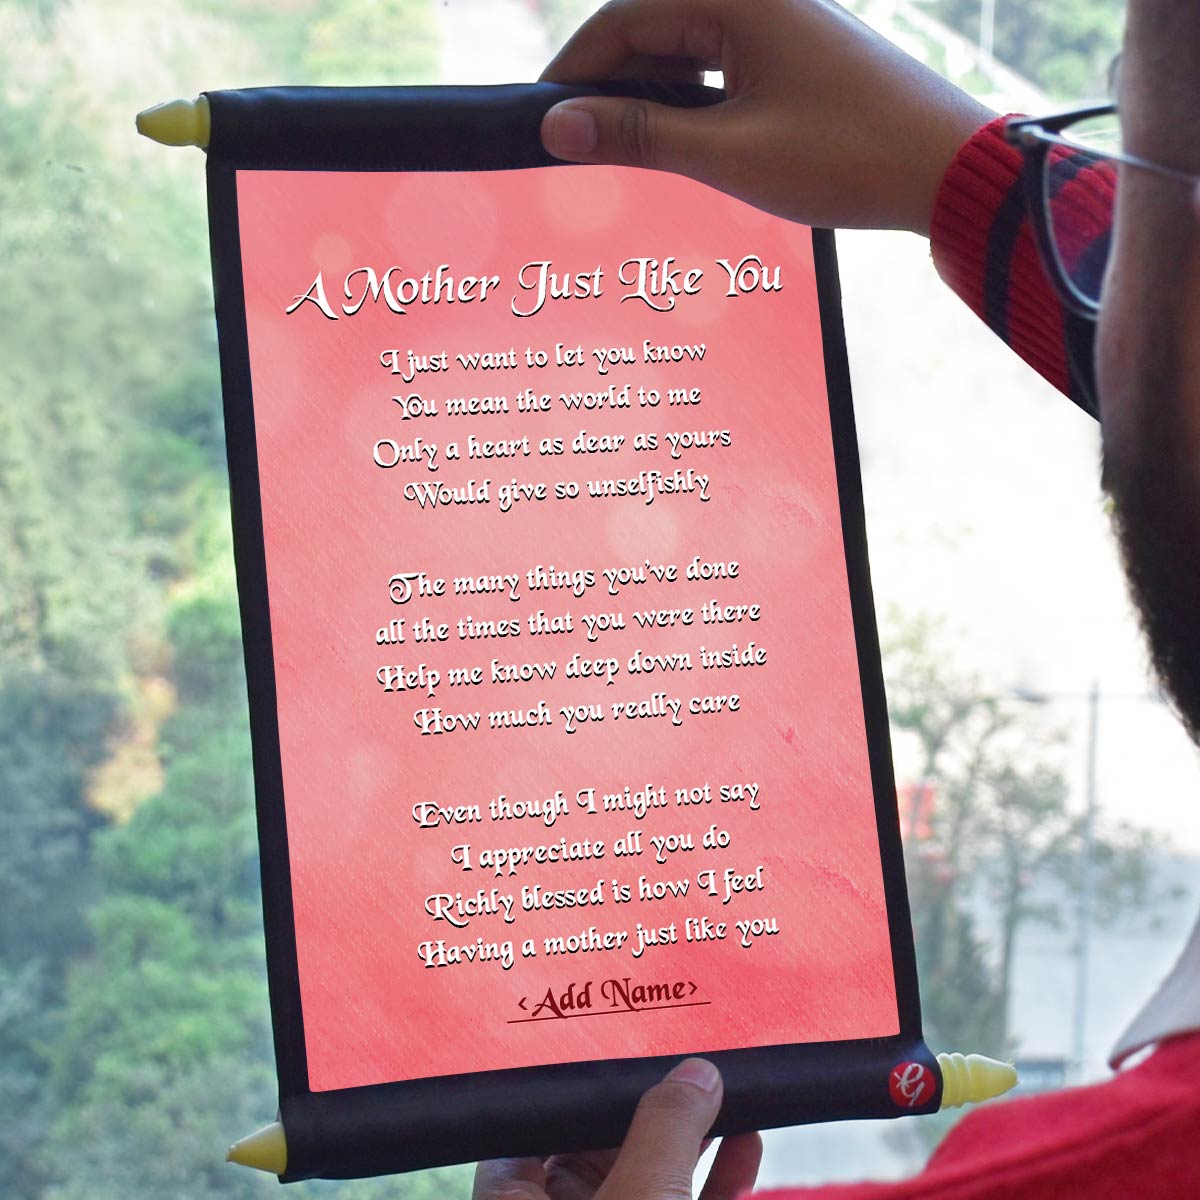 A Mother Just Like You
I just want to let you know
You mean the world to me
Only a heart as dear as yours
Would give so unselfishly
The many things you've done
all the times that you were there
Help me know deep down inside
How much you really care
Even though I might not say
I appreciate all you do
Richly blessed is how I feel
Having a mother just like you
<Add Name>